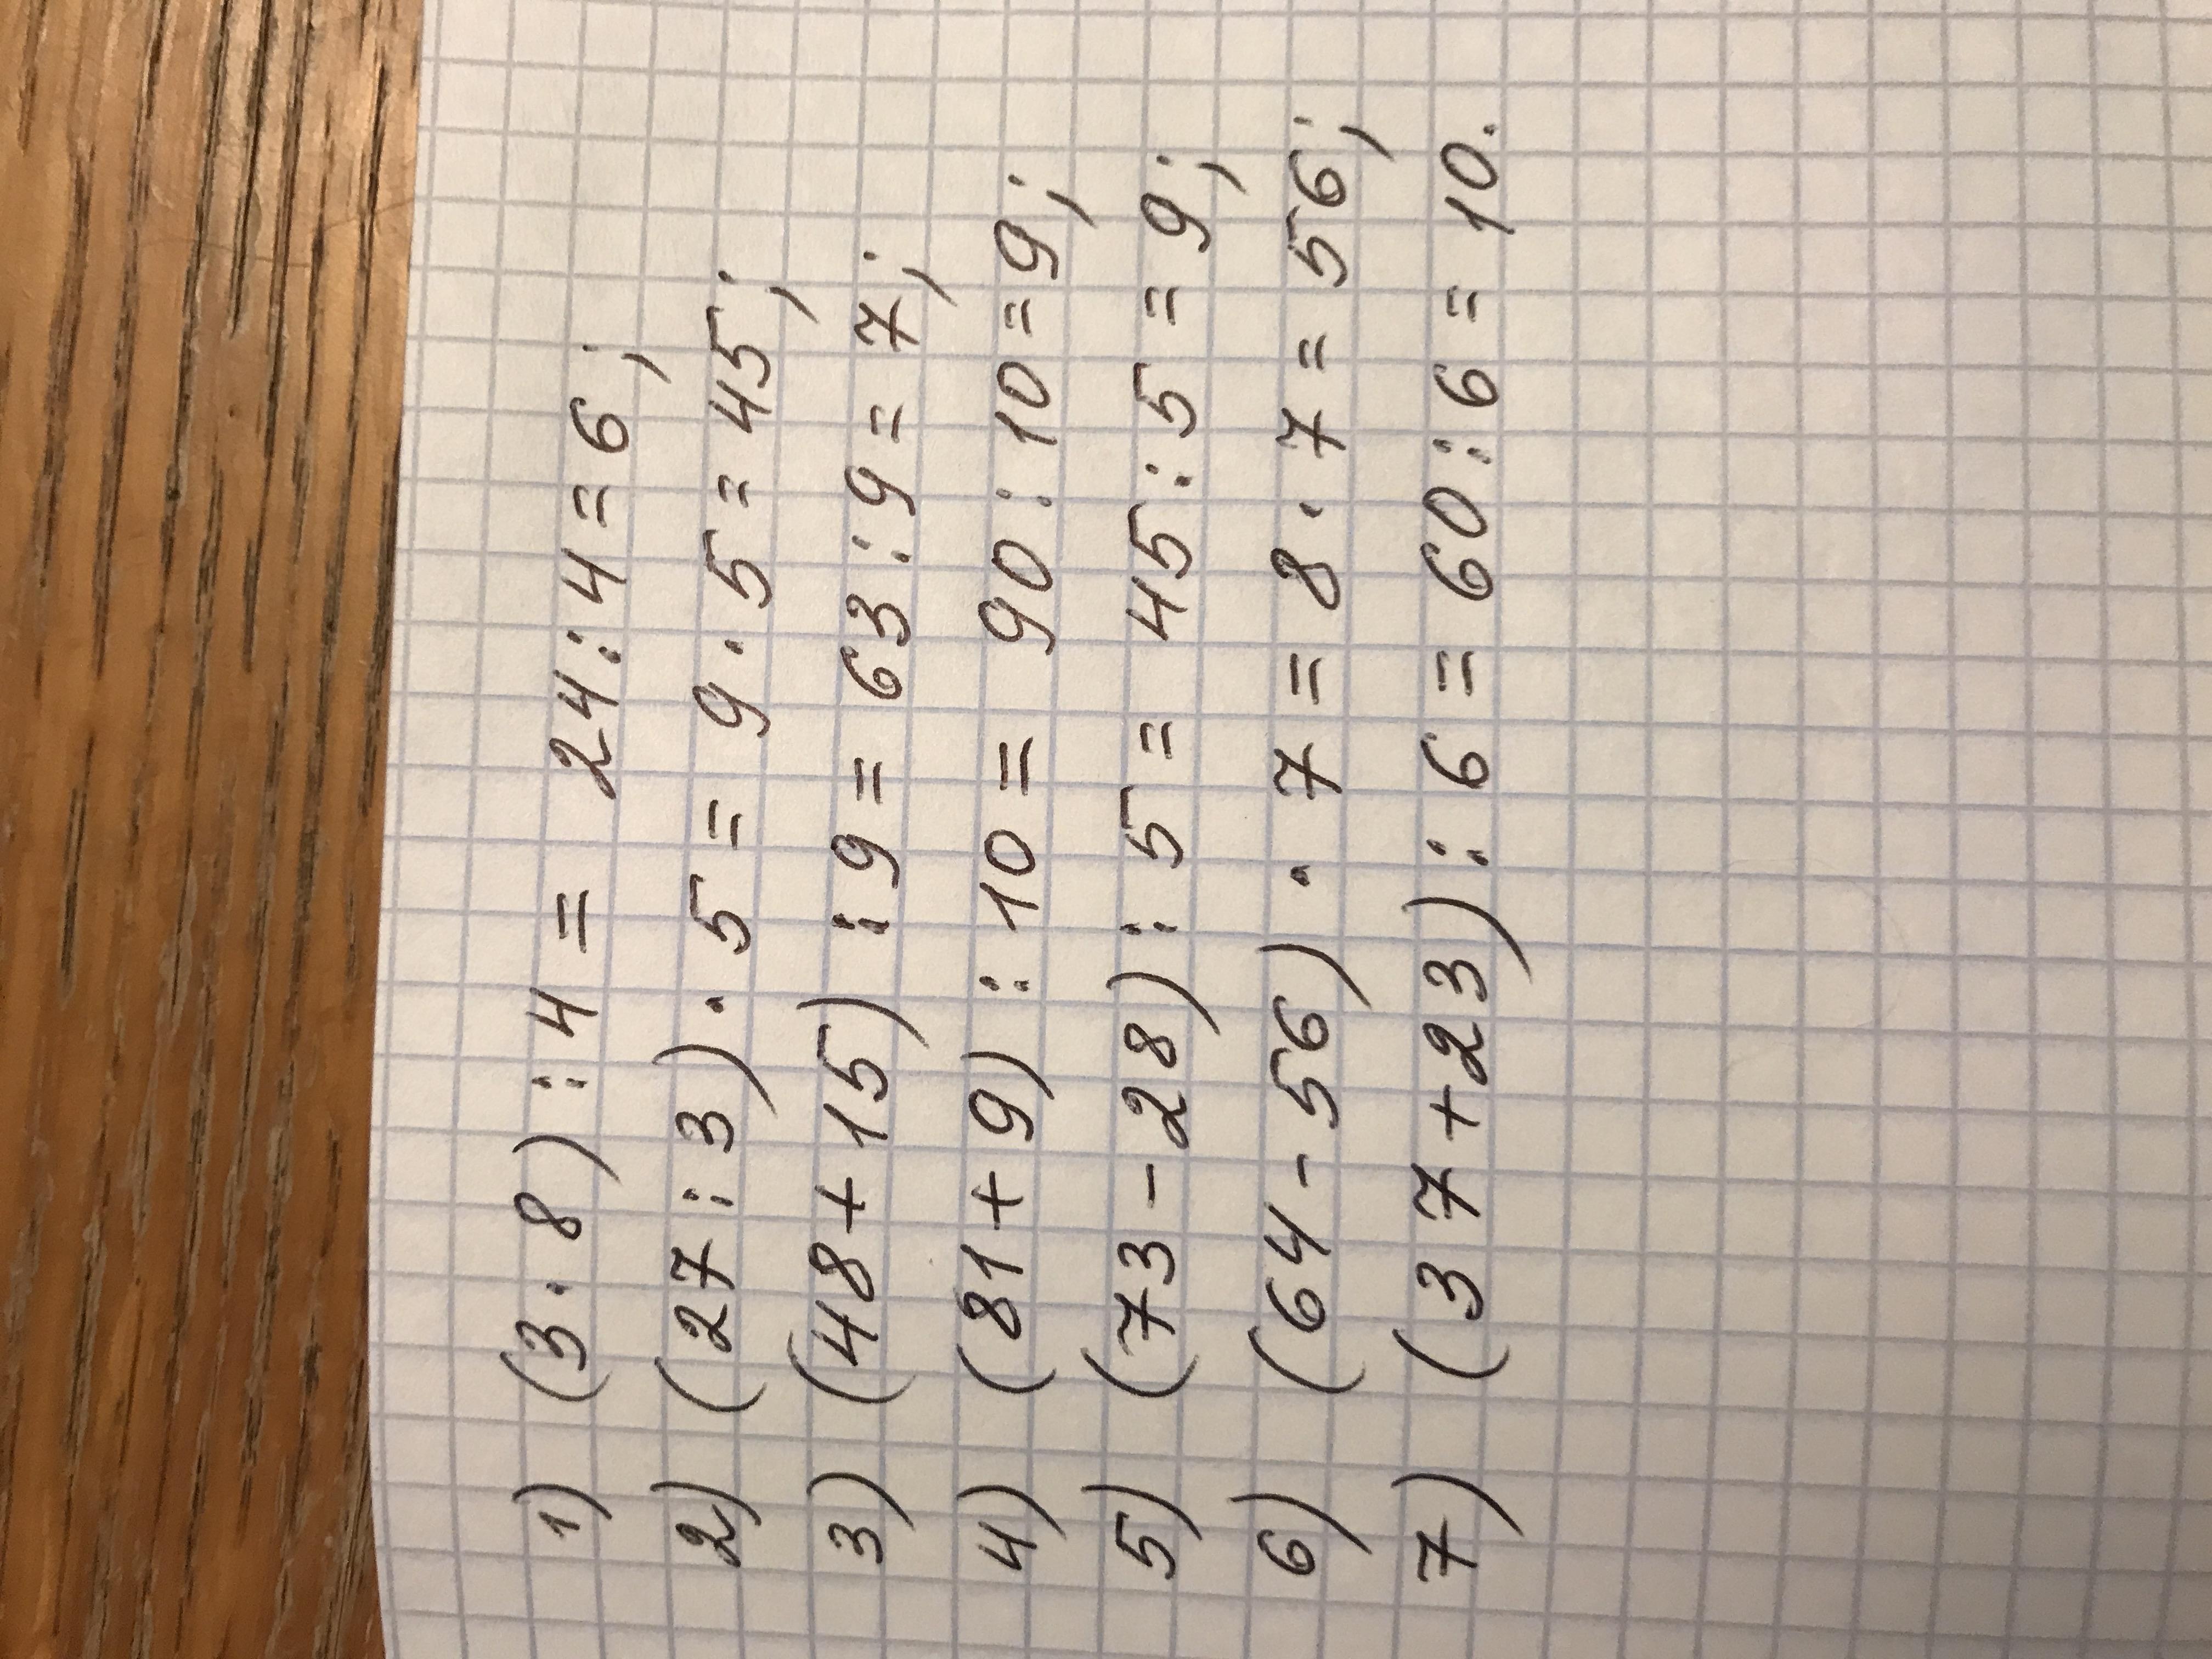 1) (3 · 8) : 4 = 24 : 4 = 6 ;
2) (27 : 3) · 5 = 9 · 5 = 45 ;
3) (48 + 15) : 9 = 63 : 9 = 7 ;
4) (81 + 9) : 10 = 90 : 10 = 9 ;
5) (73 - 28) : 5 = 45 : 5 = 9 ;
6) (64 - 56) · 7 = 8 · 7 = 56 ;
7) (37 + 23) : 6 = 60 : 6 = 10.